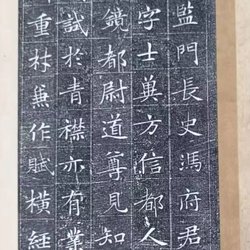 監門長史馮府君
字士兾方信都人
鏡都尉道尊見知
試於青襟亦有業
重材兼作賦橫経